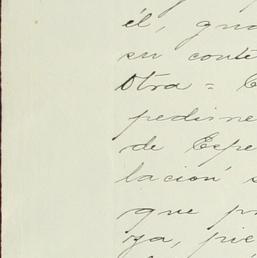 él, qua
su conte
Otra = C
pedime
de Espe
lación s
que pr
za, pie